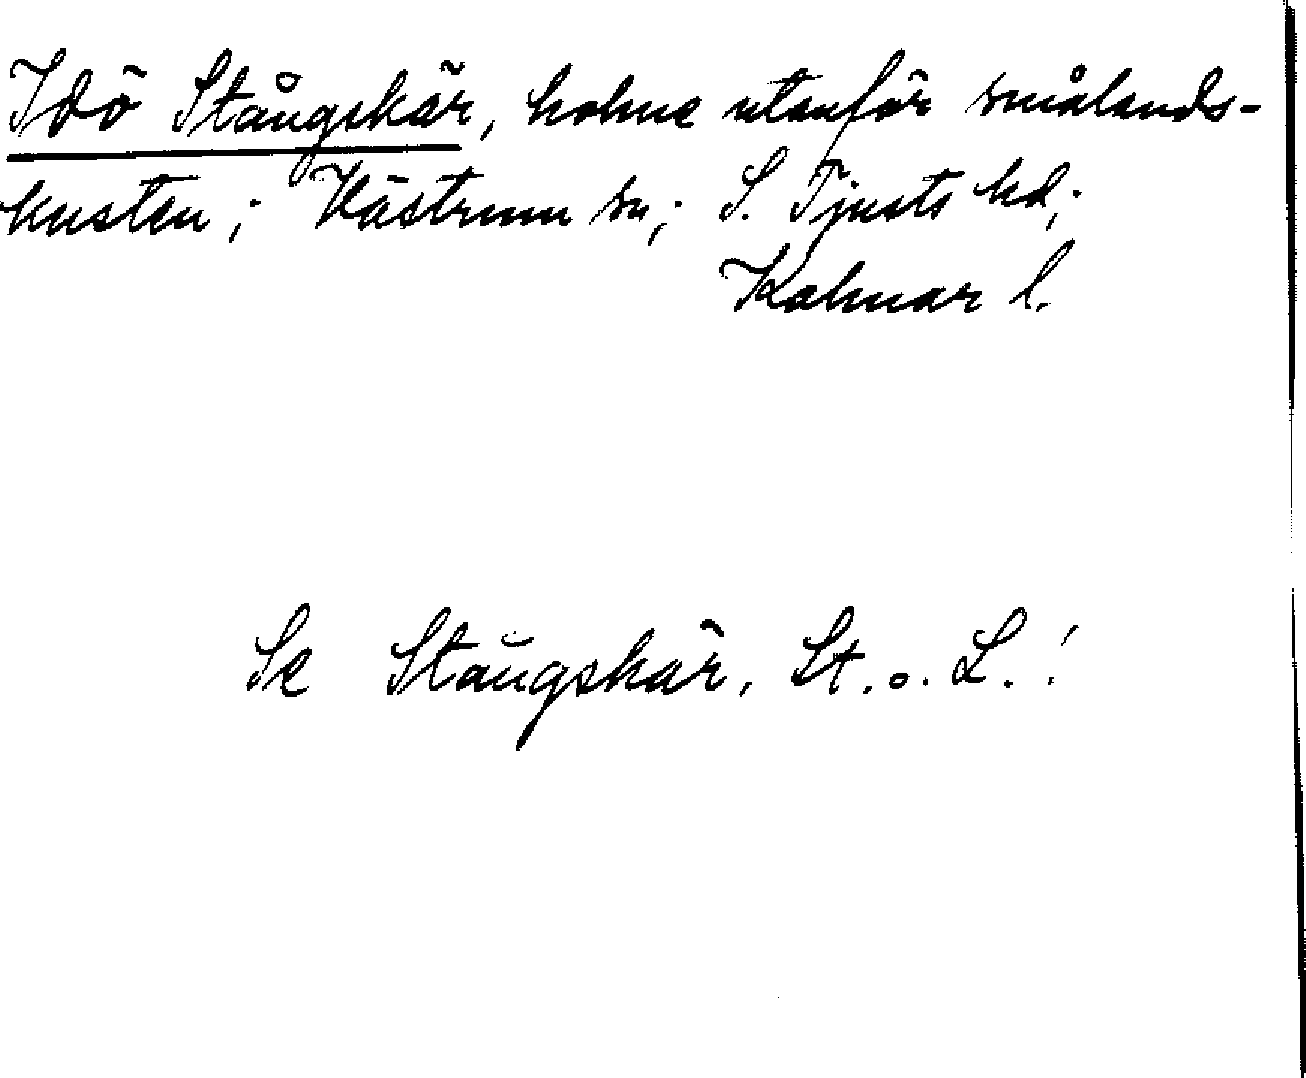 Idö Stångskär, holme utanför smålands-
kusten; Västrum sn; S. Tjusts hd;
Kalmar l.
Se Stångskär, St. o. L.!